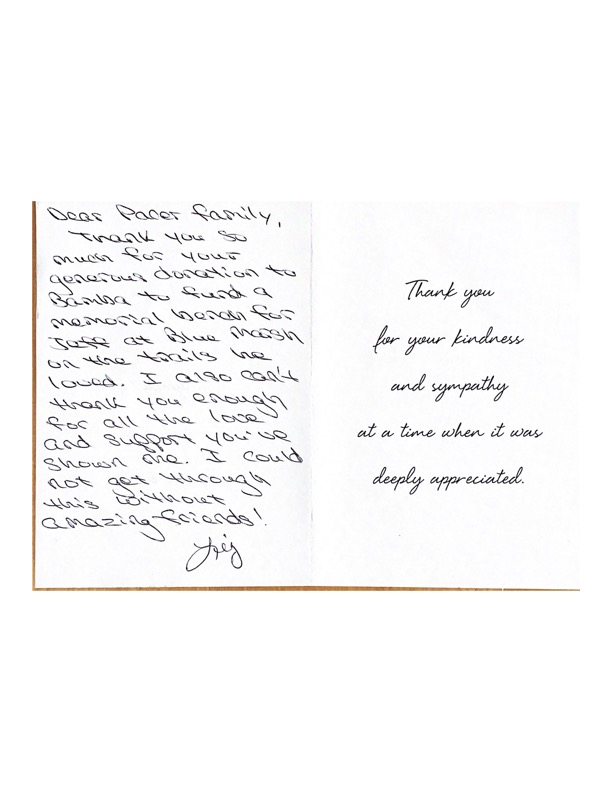 Dear Pacer family,
Thank you so
much for your
generous donation to
Bamba to fund a
memorial bench for
Jeff at Blue Marsh
on the trails he
loved. I also can't
thank you enough
for all the love
and support you've
shown me. I could
not get through
this without
amazing friends!
Thank you
for your kindness
and sympathy
at a time when it was
deeply appreciated.